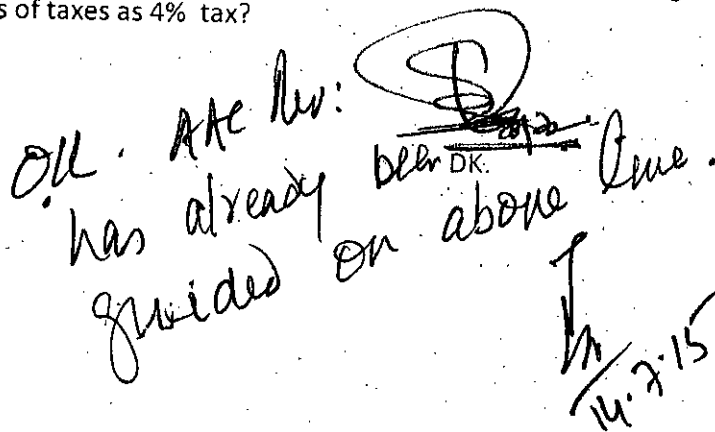 s of taxes as 4% tax?
OK. AAC Rev:
has already been DK.
guided on above line.
14.7.15